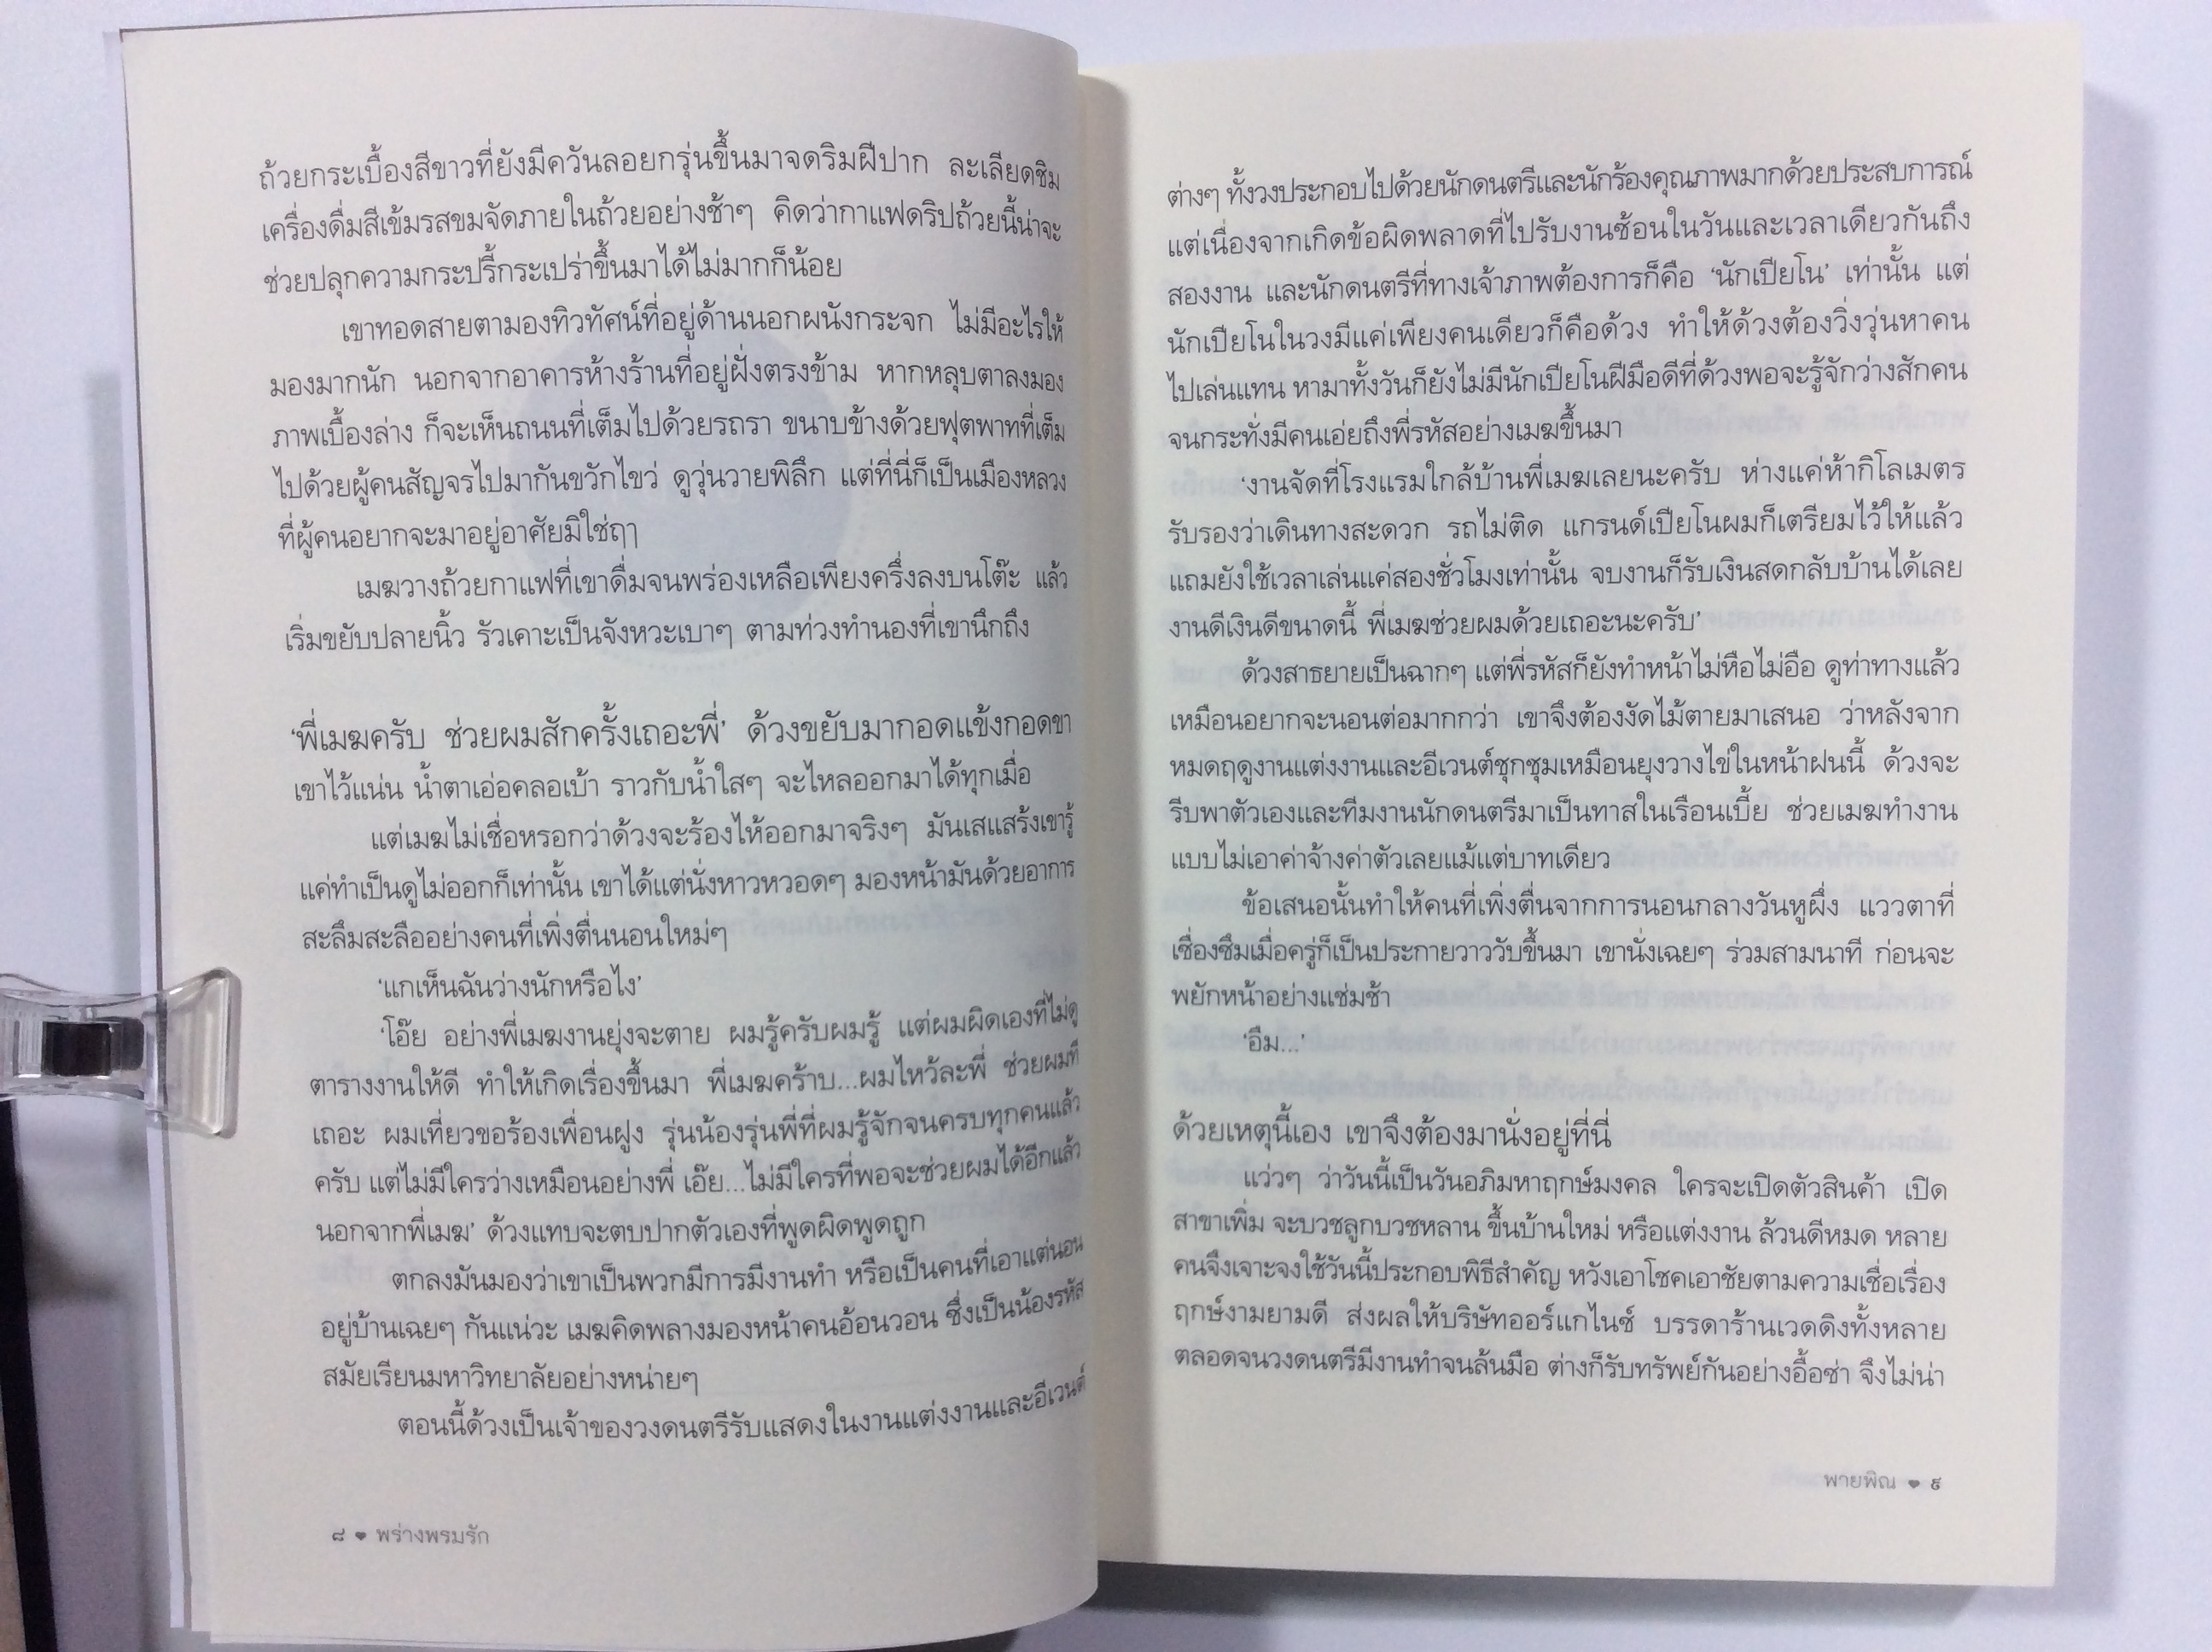 ถ้วยกระเบื้องสีขาวที่ยังมีควันลอยกรุ่นขึ้นมาจดริมฝีปาก ละเลียดชิม
เครื่องดื่มสีเข้มรสขมจัดภายในถ้วยอย่างช้าๆ คิดว่ากาแฟดริปถ้วยนี้น่าจะ
ช่วยปลุกความกระปรี้กระเปร่าขึ้นมาได้ไม่มากก็น้อย
เขาทอดสายตามองทิวทัศน์ที่อยู่ด้านนอกผนังกระจก ไม่มีอะไรให้
มองมากนัก นอกจากอาคารห้างร้านที่อยู่ฝั่งตรงข้าม หากหลุบตาลงมอง
ภาพเบื้องล่าง ก็จะเห็นถนนที่เต็มไปด้วยรถรา ขนาบข้างด้วยฟุตพาทที่เต็ม
ไปด้วยผู้คนสัญจรไปมากันขวักไขว่ ดูวุ่นวายพิลึก แต่ที่นี่ก็เป็นเมืองหลวง
ที่ผู้คนอยากจะมาอยู่อาศัยมิใช่ฤๅ
เมฆวางถ้วยกาแฟที่เขาดื่มจนพร่องเหลือเพียงครึ่งลงบนโต๊ะ แล้ว
เริ่มขยับปลายนิ้ว รัวเคาะเป็นจังหวะเบาๆ ตามท่วงทำนองที่เขานึกถึง
‘พี่เมฆครับ ช่วยผมสักครั้งเถอะพี่’ ด้วงขยับมากอดแข้งกอดขา
เขาไว้แน่น น้ำตาเอ่อคลอเบ้า ราวกับน้ำใสๆ จะไหลออกมาได้ทุกเมื่อ
แต่เมฆไม่เชื่อหรอกว่าด้วงจะร้องไห้ออกมาจริงๆ มันเสแสร้งเขารู้
แค่ทำเป็นดูไม่ออกก็เท่านั้น เขาได้แต่นั่งหาวหวอดๆ มองหน้ามันด้วยอาการ
สะลึมสะลืออย่างคนที่เพิ่งตื่นนอนใหม่ๆ
‘แกเห็นฉันว่างนักหรือไง’
‘โอ๊ย อย่างพี่เมฆงานยุ่งจะตาย ผมรู้ครับผมรู้ แต่ผมผิดเองที่ไม่ดู
ตารางงานให้ดี ทำให้เกิดเรื่องขึ้นมา พี่เมฆคร้าบ...ผมไหว้ละพี่ ช่วยผมที
เถอะ ผมเที่ยวขอร้องเพื่อนฝูง รุ่นน้องรุ่นพี่ที่ผมรู้จักจนครบทุกคนแล้ว
ครับ แต่ไม่มีใครว่างเหมือนอย่างพี่ เอ๊ย...ไม่มีใครที่พอจะช่วยผมได้อีกแล้ว
นอกจากพี่เมฆ’ ด้วงแทบจะตบปากตัวเองที่พูดผิดพูดถูก
ตกลงมันมองว่าเขาเป็นพวกมีการมีงานทำ หรือเป็นคนที่เอาแต่นอน
อยู่บ้านเฉยๆ กันแน่วะ เมฆคิดพลางมองหน้าคนอ้อนวอน ซึ่งเป็นน้องรหัส
สมัยเรียนมหาวิทยาลัยอย่างหน่ายๆ
ตอนนี้ด้วงเป็นเจ้าของวงดนตรีรับแสดงในงานแต่งงานและอีเวนต์
๘ ♥ พร่างพรมรัก
ต่างๆ ทั้งวงประกอบไปด้วยนักดนตรีและนักร้องคุณภาพมากด้วยประสบการณ์
แต่เนื่องจากเกิดข้อผิดพลาดที่ไปรับงานซ้อนในวันและเวลาเดียวกันถึง
สองงาน และนักดนตรีที่ทางเจ้าภาพต้องการก็คือ ‘นักเปียโน’ เท่านั้น แต่
นักเปียโนในวงมีแค่เพียงคนเดียวก็คือด้วง ทำให้ด้วงต้องวิ่งวุ่นหาคน
ไปเล่นแทน หามาทั้งวันก็ยังไม่มีนักเปียโนฝีมือดีที่ด้วงพอจะรู้จักว่างสักคน
จนกระทั่งมีคนเอ่ยถึงพี่รหัสอย่างเมฆขึ้นมา
‘งานจัดที่โรงแรมใกล้บ้านพี่เมฆเลยนะครับ ห่างแค่ห้ากิโลเมตร
รับรองว่าเดินทางสะดวก รถไม่ติด แกรนด์เปียโนผมก็เตรียมไว้ให้แล้ว
แถมยังใช้เวลาเล่นแค่สองชั่วโมงเท่านั้น จบงานก็รับเงินสดกลับบ้านได้เลย
งานดีเงินดีขนาดนี้ พี่เมฆช่วยผมด้วยเถอะนะครับ’
ด้วงสาธยายเป็นฉากๆ แต่พี่รหัสก็ยังทำหน้าไม่หือไม่อือ ดูท่าทางแล้ว
เหมือนอยากจะนอนต่อมากกว่า เขาจึงต้องงัดไม้ตายมาเสนอ ว่าหลังจาก
หมดฤดูงานแต่งงานและอีเวนต์ชุกชุมเหมือนยุงวางไข่ในหน้าฝนนี้ ด้วงจะ
รีบพาตัวเองและทีมงานนักดนตรีมาเป็นทาสในเรือนเบี้ย ช่วยเมฆทำงาน
แบบไม่เอาค่าจ้างค่าตัวเลยแม้แต่บาทเดียว
ข้อเสนอนั้นทำให้คนที่เพิ่งตื่นจากการนอนกลางวันหูผึ่ง แววตาที่
เซื่องซึมเมื่อครู่ก็เป็นประกายวาววับขึ้นมา เขานั่งเฉยๆ ร่วมสามนาที ก่อนจะ
พยักหน้าอย่างแช่มช้า
‘อืม...’
ด้วยเหตุนี้เอง เขาจึงต้องมานั่งอยู่ที่นี่
แว่วๆ ว่าวันนี้เป็นวันอภิมหาฤกษ์มงคล ใครจะเปิดตัวสินค้า เปิด
สาขาเพิ่ม จะบวชลูกบวชหลาน ขึ้นบ้านใหม่ หรือแต่งงาน ล้วนดีหมด หลาย
คนจึงเจาะจงใช้วันนี้ประกอบพิธีสำคัญ หวังเอาโชคเอาชัยตามความเชื่อเรื่อง
ฤกษ์งามยามดี ส่งผลให้บริษัทออร์แกไนซ์ บรรดาร้านเวดดิงทั้งหลาย
ตลอดจนวงดนตรีมีงานทำจนล้นมือ ต่างก็รับทรัพย์กันอย่างอื้อซ่า จึงไม่น่า
พายพิณ ♥ ๙